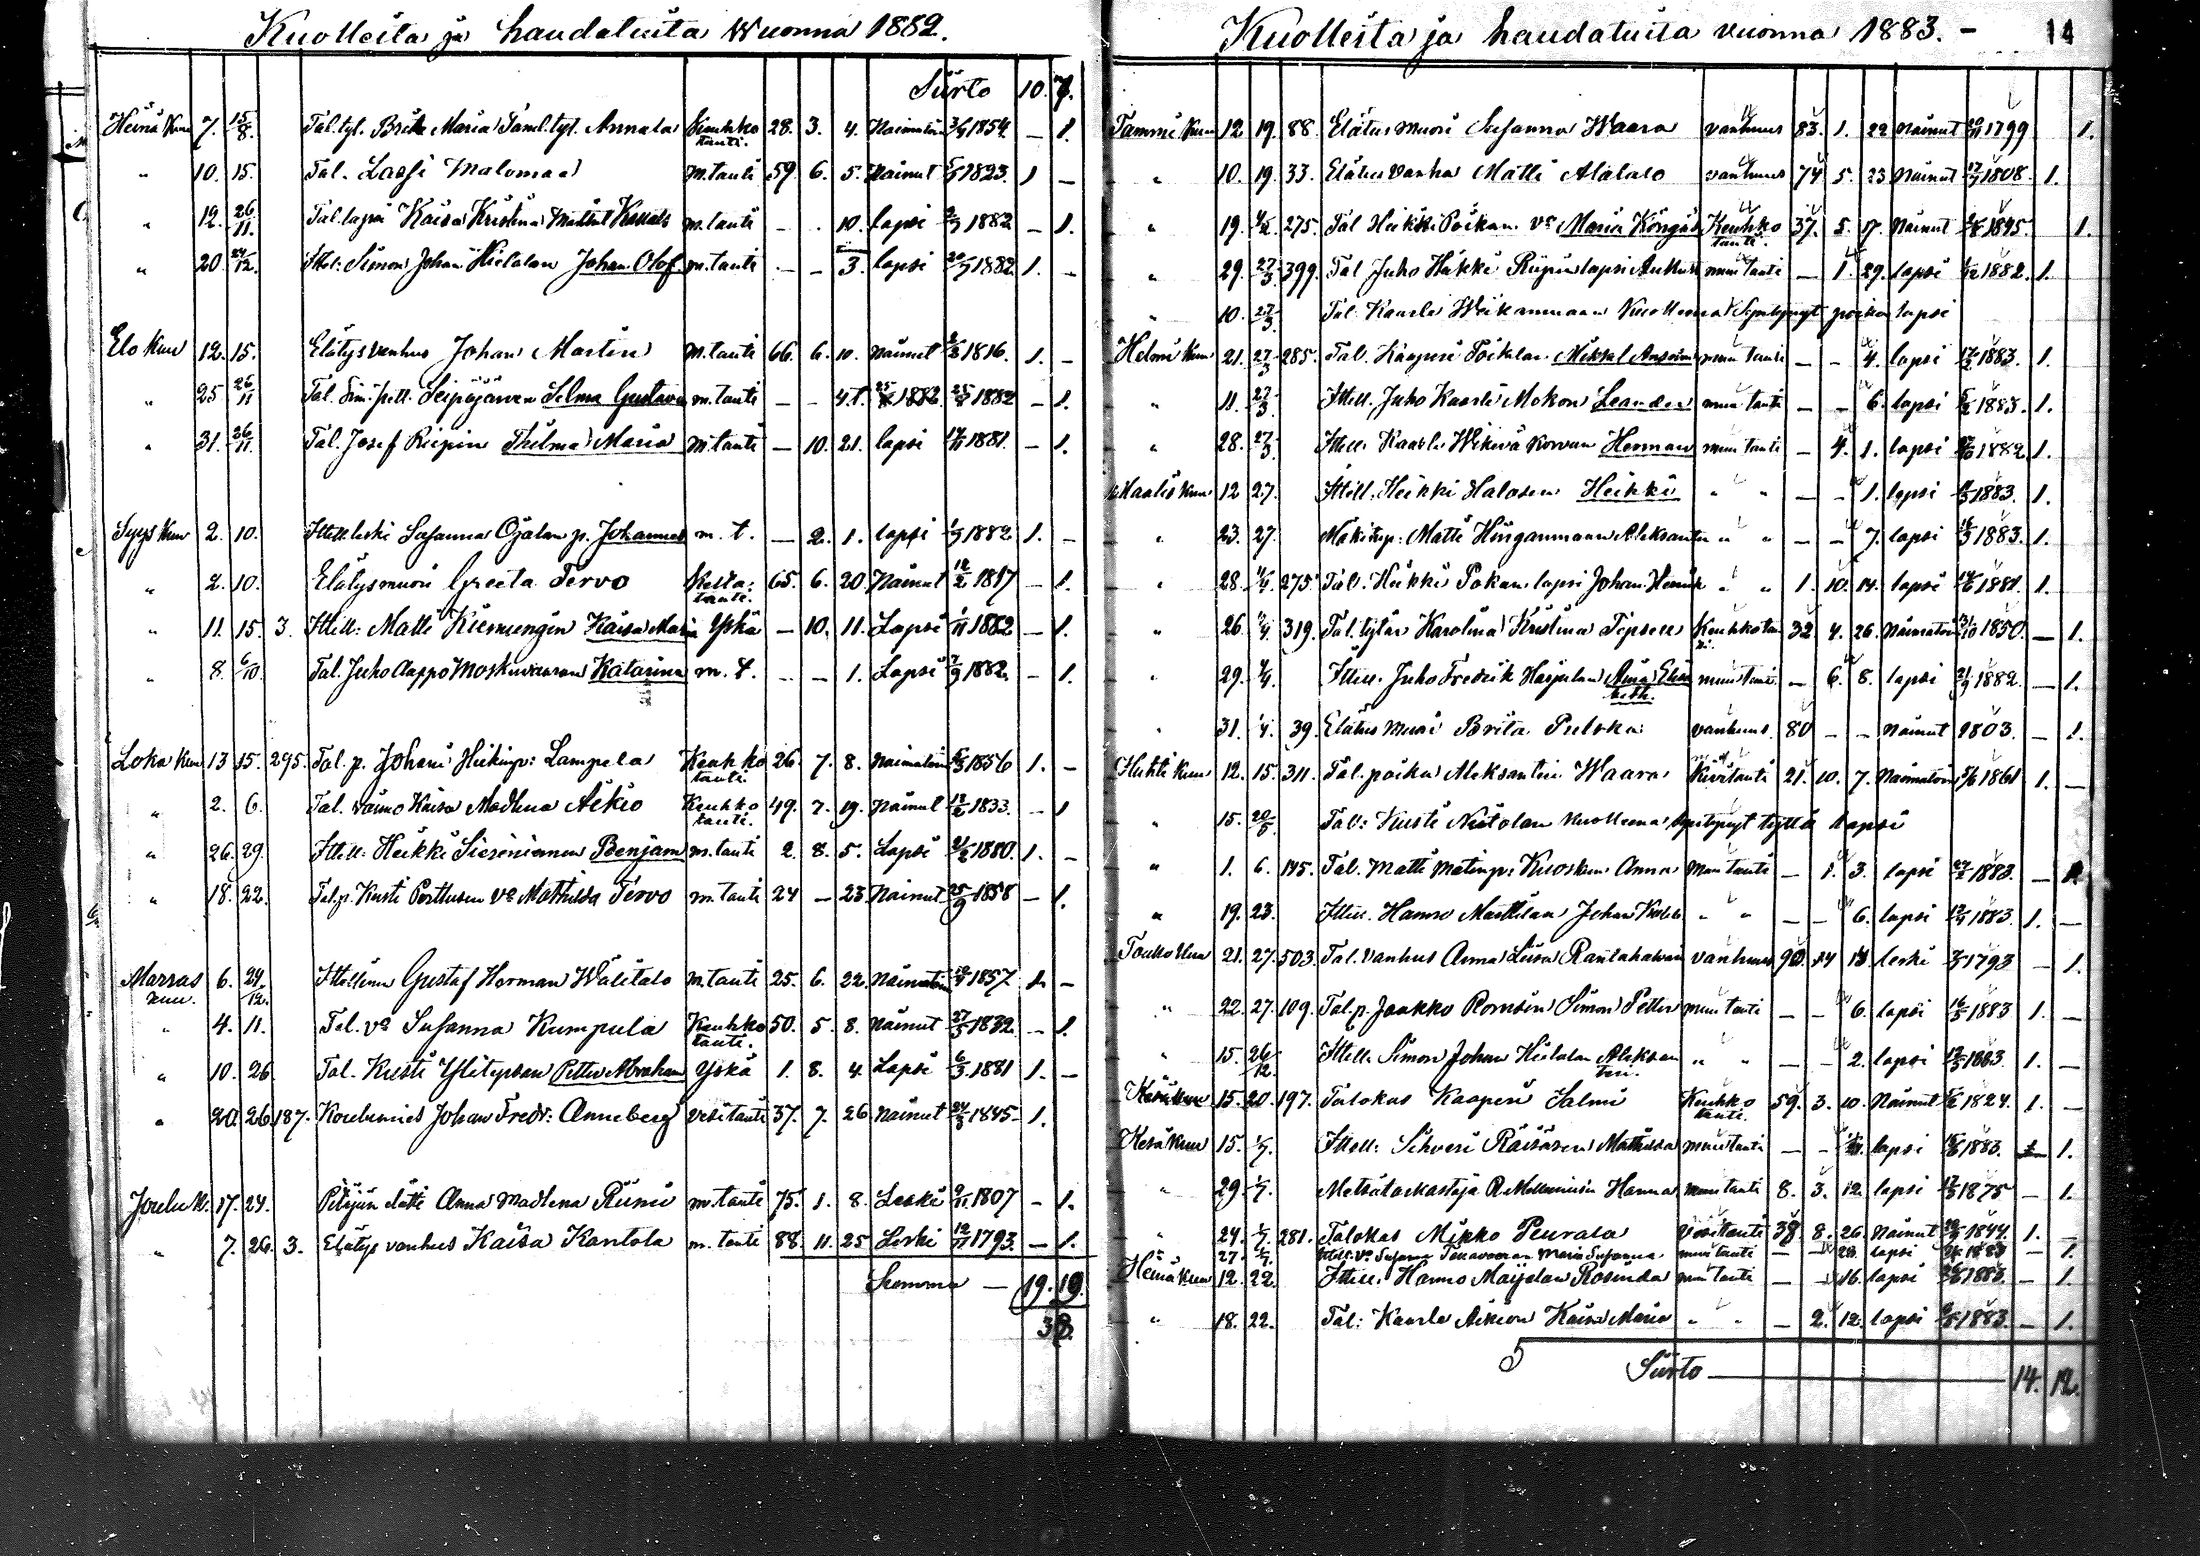 Kuolleita ja haudatuita Wuonna 1882.
Siirto 10. 9.
Heinä Kuu 7. 15/8. Tal. tyt. Brita Maria Saml. tyt. Annala Keuhko tauti. 28. 3. 4. Naimatoin 3/4 1854. — 1.
" 10. 15. Tal. Lassi Malomaa m. tauti 59. 6. 5. Nainut 5/1 1823. 1 —
" 12. 26/11. Tal. lapsi Kaisa Kristina m. tauti - - 10. lapsi 2/7 1882 — 1.
" 20. 24/12. Ittel: Simon Johan Hietalan Johan Olof m. tauti - - 3. lapsi 20/7 1882 1. -
Elo Kuu 12. 15. Elätys vanhus Johan Martin m. tauti 66. 6. 10. Nainut 2/2 1816. 1. -
" 25 26/11 Tal. Sim. pett. Seipäjärven Selma Gustava m. tauti - - 4 t. 25/8 1882 25/8 1882 — 1.
" 31. 26/11. Tal. Josef Riipin Thilma Maria m. tauti — 10. 21. lapsi 1881. — 1.
Syys Kuu 2. 10. Ittell. leski Susanna Ojalan p. Johannes m. t. — 2. 1. lapsi 1/7 1882 1. -
" 2. 10. Elätysmuori Greeta Tervo Kesta: tauti. 65. 6. 20 Nainut 12/2 1817 — 1.
" 11. 15. 3. Ittell: Matti Kiermengin Kaisa Maria Yskä — 10. 11. Lapsi 1/11 1882 — 1.
" 8. 6/10. Tal. Juho Aappo Moskuvaaran Katarina m. t. - - 1. Lapsi 7/9 1882. — 1.
Loka Kuu 13 15. 295. Tal. p. Johani Heikinp: Lampela Keuhko tauti. 26. 7. 8. Naimatoin 5/3 1856 1. -
" 2. 6. Tal. vaimo Kaisa Madlena Aikio Keuhko tauti. 49. 7. 19. Nainut 13/2 1833. — 1
" 26. 29. Ittell: Heikki Siesniemen Benjam m. tauti 2. 8. 5. Lapsi 21/2 1880. 1. -
" 18. 22. Tal. p. Kusti Porttusen Va Mathilda Tervo m. tauti 24 — 23 Nainut 25/9 1858 — 1.
Marras kuu. 6. 24/12. Ittellinen Gustaf Herman Wälitalo m. tauti 25. 6. 22. Naimatoin 1857 1. -
" 4. 11. Tal. va Susanna Kumpula Keuhko tauti. 50. 5. 8. Nainut 27/5 1832. — 1.
" 10. 26. Tal. Kusti Ylitepsan Petter Abraham Yskä 1. 8. 4. Lapsi 6/3 1881 1. —
" 20. 26. 187. Koulumies Johan Fredr: Anneberg Vesitauti 37. 7. 26 Nainut 24/3 1845. 1.
Joulu k. 17. 24. Pitäjän elätti Anna Madlena Riimi m. tauti 75. 1. 8. Leski 9/11. 1807 - 1.
" 7. 26. 3. Elätys vanhus Kaisa Kantola m. tauti 88. 11. 25 Leski 12/11 1793. — 1.
Summa — 19. 19.
38.
Kuolleita ja haudatuita vuonna 1883. - 14
Tammi Kuu 12 19. 88. Elätus muori Susanna Waara vanhuus 83. 1. 22 Nainut 20/11 1799 1.
" 10. 19. 33. Elätus vanha Matti Alatalo vanhuus 74 5. 23 Nainut 17/7 1808. 1.
" 19. 275. Tal Heikki Poikan. Va Maria Köngäs Keuhko tauti. 37. 5. 17. Nainut 1845. 1.
" 29. 27/3. 399. Tal Juho Heikki Riipin lapsi muu tauti — 1. 29. lapsi 1882. 1.
" 10. 27/3. Tal. Kaarlo Weikanmaan Kuollena Syntynyt poika lapsi
Helmi Kuu 21. 27/3 285. Tal. Kaaperi Mikkel muu tauti - - 4. lapsi 17/2 1883. 1.
" 11. 27/3. Ittell. Juho Kaarlo Mokon Leander muu tauti - - 6. lapsi 5/2 1883. 1.
" 28. 27/3. Ittell. Kaarlo Wikeväkorvan Herman muu tauti — 4. 1. lapsi 1882. 1.
Maalis Kuu 12 27. Ittell. Heikki Halosen Heikki " " — - 1. lapsi 1883. 1.
" 23. 27. Mökitup: Matti Hinganmaan Aleksantera " " — - 7. lapsi 16/3 1883. 1.
" 28. 275. Tal. Heikki Pokan lapsi Johan Henrik " " 1. 10. 14. lapsi 1881. 1.
" 26. 319. Tal. tytär Karolina Kristina Tepsell Keuhkotau ti. 32 4. 26. Naimatoin 1850. — 1.
" 29. Ittell. Juho Fredrik Harjulan Aina Elisa beth. muu tauti. — 6. 8. lapsi 21/9 1882. — 1.
" 31. 39. Elätus muori Brita Pulska: vanhuus. 80 - - Nainut 1803. — 1.
Huhti Kuu 12. 15. 311. Tal. poika Aleksantteri Waara Kivitauti 21. 10. 7. Naimatoin 5/6 1861 1. —
" 15. 20/5. Tal: Kusti Niitolan Kuollena syntynyt tyttö lapsi
" 1. 6. 145. Tal. Matti Matinp: Kuoskun Anna Muu tauti — 1. 3. lapsi 27/2 1883. — 1
" 19. 23. Ittell. Hanno Martilan Johan " " — - 6. lapsi 1883. 1. —
Touko Kuu 21. 27. 503. Tal. vanhus Anna Liisa vanhuus 90. leski 1793 — 1.
" 22. 27. 109. Tal. p. Jaakko Romsin Simon Petter muu tauti — - 6. lapsi 16/5 1883 1. —
" 15. 26/12. Ittell. Simon Johan Hietalan Aleksan teri. " " — - 2. lapsi 13/5 1883. 1. —
Kesäkuu 15. 20. 197. Talokas Kaaperi Salmi Keuhko tauti. 59. 3. 10. Nainut 1824. 1. —
Kesä Kuu 15. 1/7. Ittell: Sihveri Räisäsen Mathilda Muu tauti — - lapsi 1883. 1.
" 29. 1/7. Metsätarkastaja R. Hanna muu tauti 8. 3. 12. lapsi 1875 — 1.
" 24. 1/7. 281. Talokas Mikko Peurala Vesitauti 38. 8. 26. Nainut 1844. 1. -
27. 1/7. Ittell. Va Susanna Maria Susanna. muu tauti — - lapsi 1883 — 1.
Heinä Kuu 12. 22. Ittell. Hanno Maijalan Rosinda muu tauti — - 16. lapsi 1883. — 1.
" 18. 22. Tal: Kaarlo Aikion Kaisa Maria " " — 2. 12. lapsi 1883. — 1.
Siirto 14. 12.